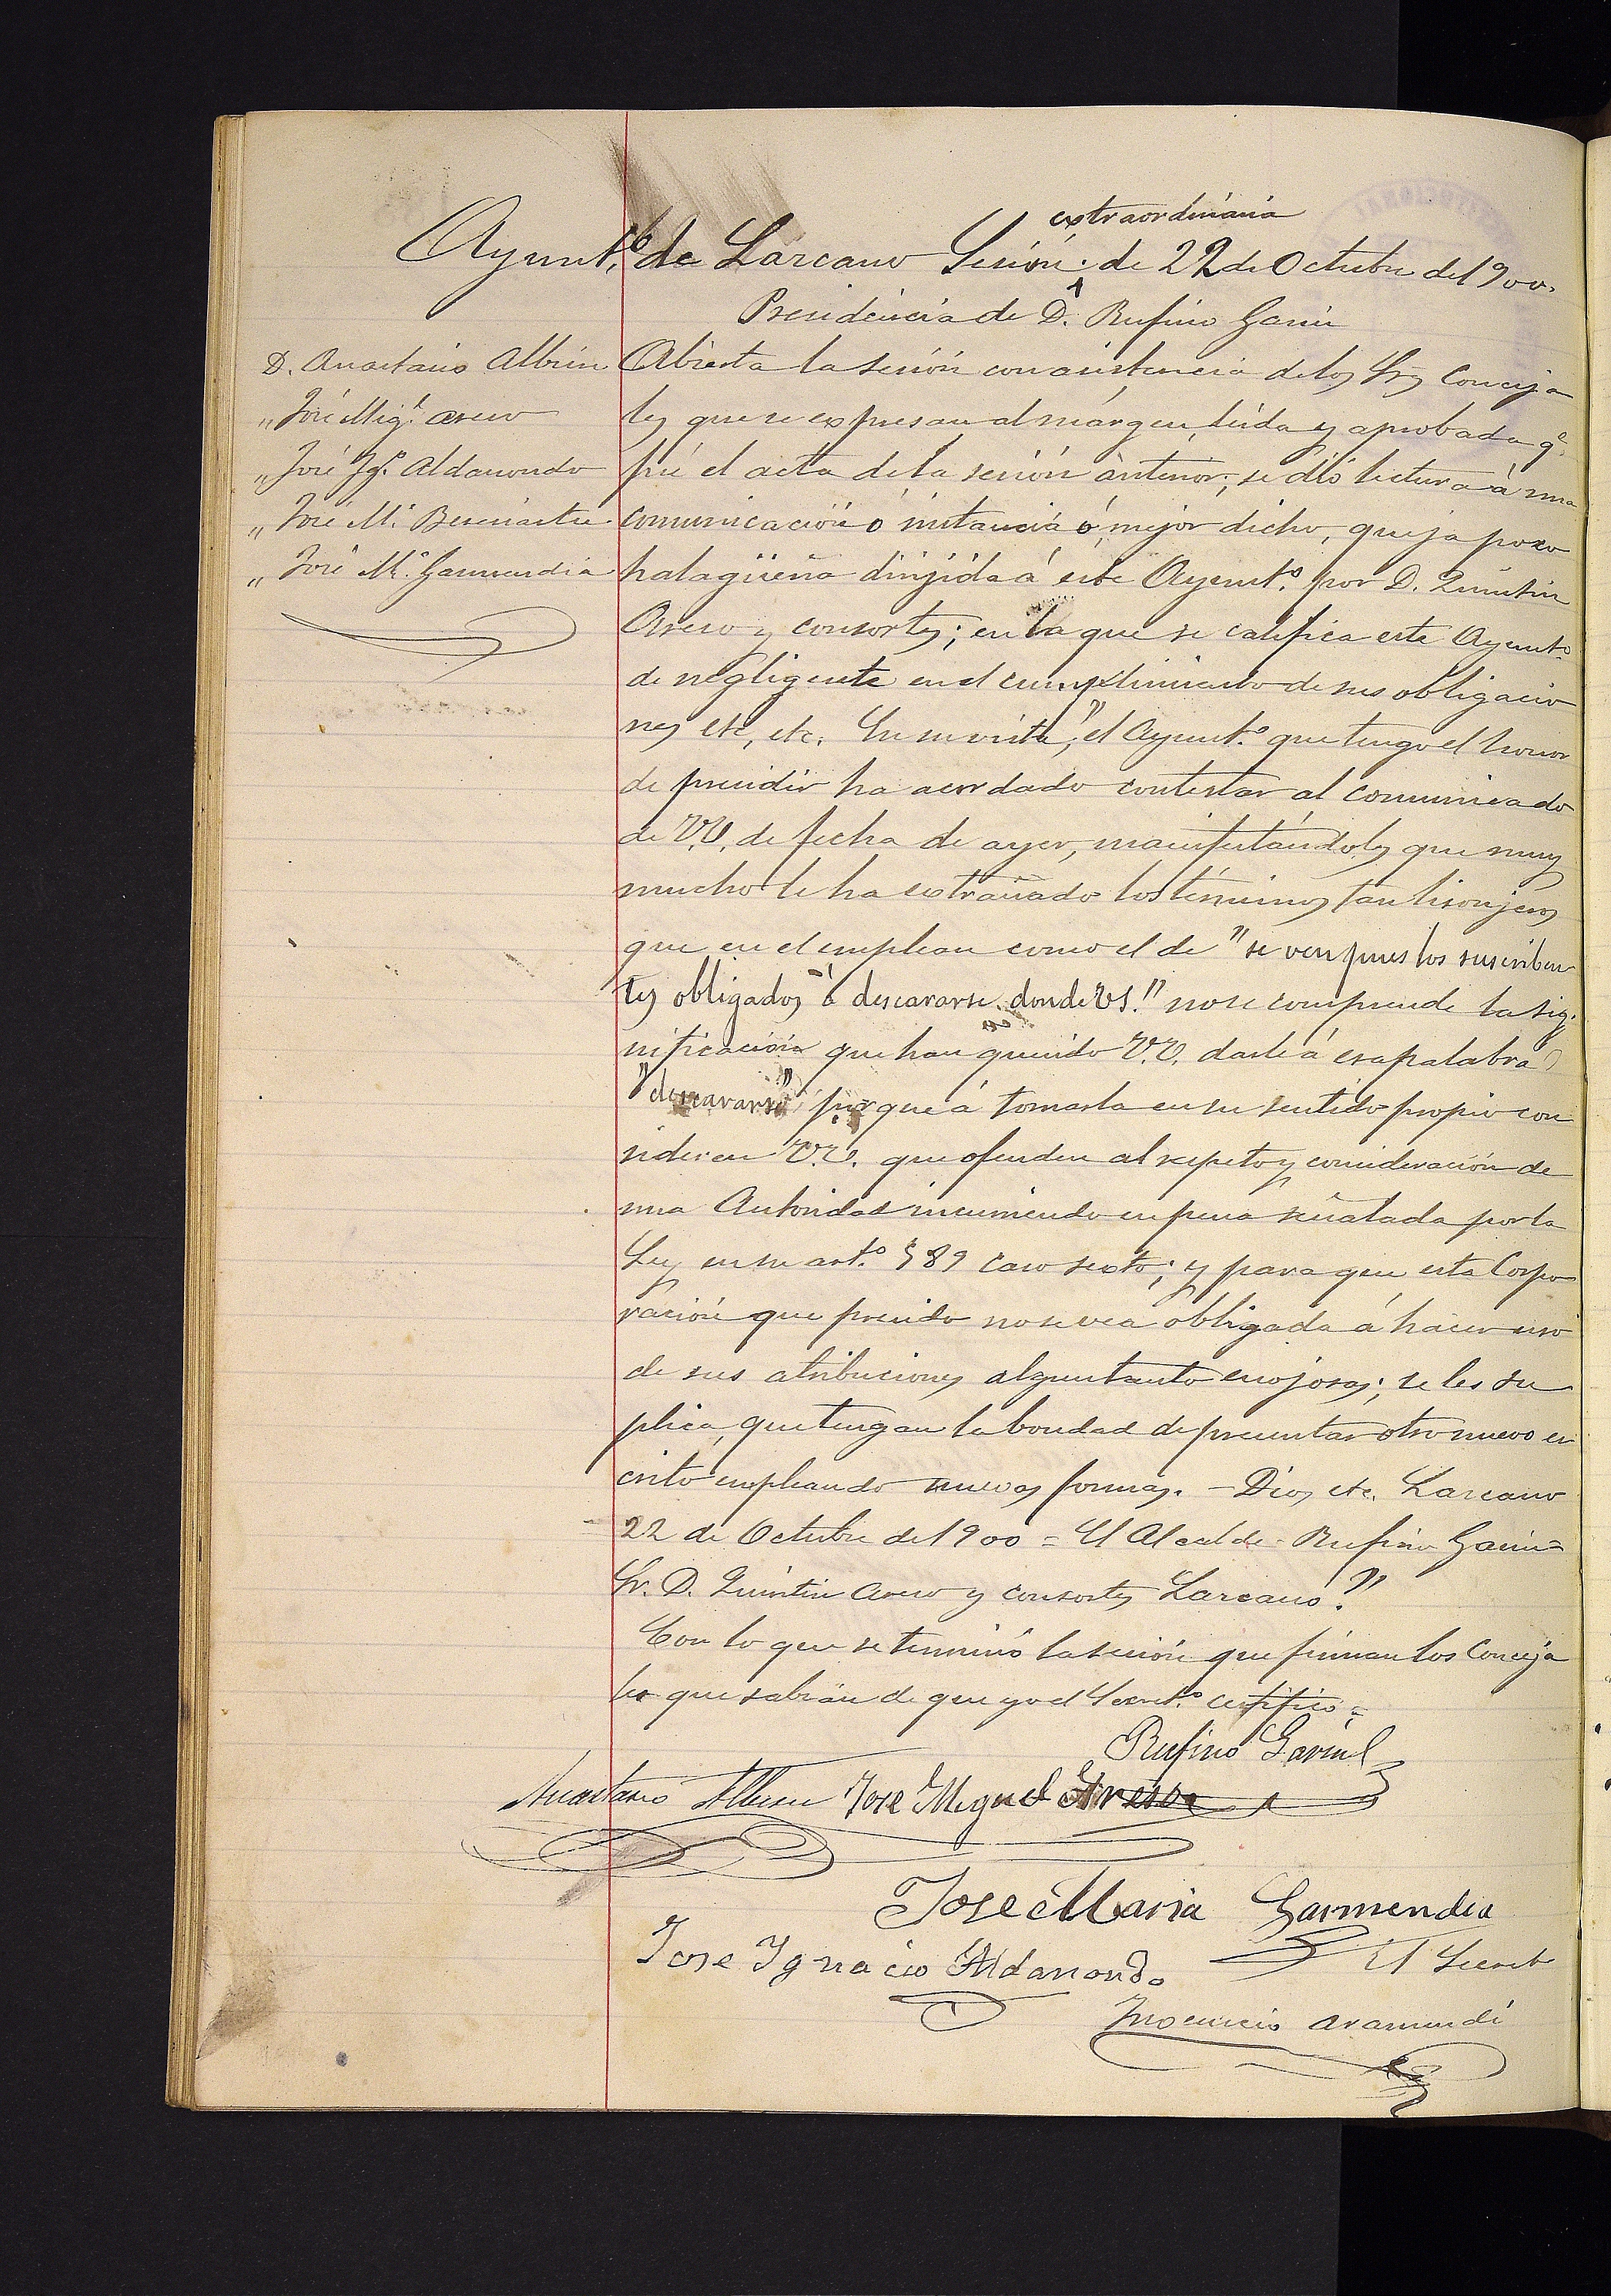 extraordinaria
Ayunt.to de Larcano Sesión de 22 de Octubre del 900.
Presidencia de D. Rufino Garin
D. Anastasio Albisu
" José Mig.l Areso
" José Ig.o Aldanondo
" José M.a Beseiartu
" José M.a Garmendia
Abierta la sesión con asistencia de los Srs Conceja
les que se expresan al márgen, leida y aprobada q.e
fué el acta de la sesión anterior; se dió lectura á una
comunicación ó instancia ó mejor dicho, queja poco
halagüeña dirijida á este Ayunt.o por D. Quintin
Areso y consortes; en la que se califica este Ayunt.o
de negligente en el cumplimiento de sus obligacio
nes etc, etc. En su vista, "el Ayunt.o que tengo el honor
de presidir ha acordado contestar al comunicado
de V.V. de fecha de ayer, manifestándoles que muy
mucho le ha extrañado los términos tan lisonjeros
que en el emplean como el de "se ven pues los suscriben
tes obligados á descararse donde VS." no se comprende la sig.
nificación que han querido V.V. darle á esa palabra
"descararse" porque á tomarla en su sentido propio con
sideren V.V. que ofenden al respeto y consideración de
una Autoridad incurriendo en pena señalada por la
Ley en su art.o 589 caso sexto; y para que esta Corpo
ración que presido no se vea obligada á hacer uso
de sus atribuciones algun tanto enojosas; se les su
plica, que tengan la bondad de presentar otro nuevo es
crito empleando nuevas formas. - Dios etc. Larcano
22 de Octubre de 1900 = El Alcalde - Rufino Garin =
Sr. D. Quintin Areso y consortes Larcano."
Con lo que se terminó la sesión que firman los Conceja
les que sabian de que yo el Secret.o certifico =
Rufino Garin
Anastasio Albisu José Miguel Areso
Jose Maria Garmendia
Jose Ignacio Aldanondo
El Secret.o
Inocencio Aramendi